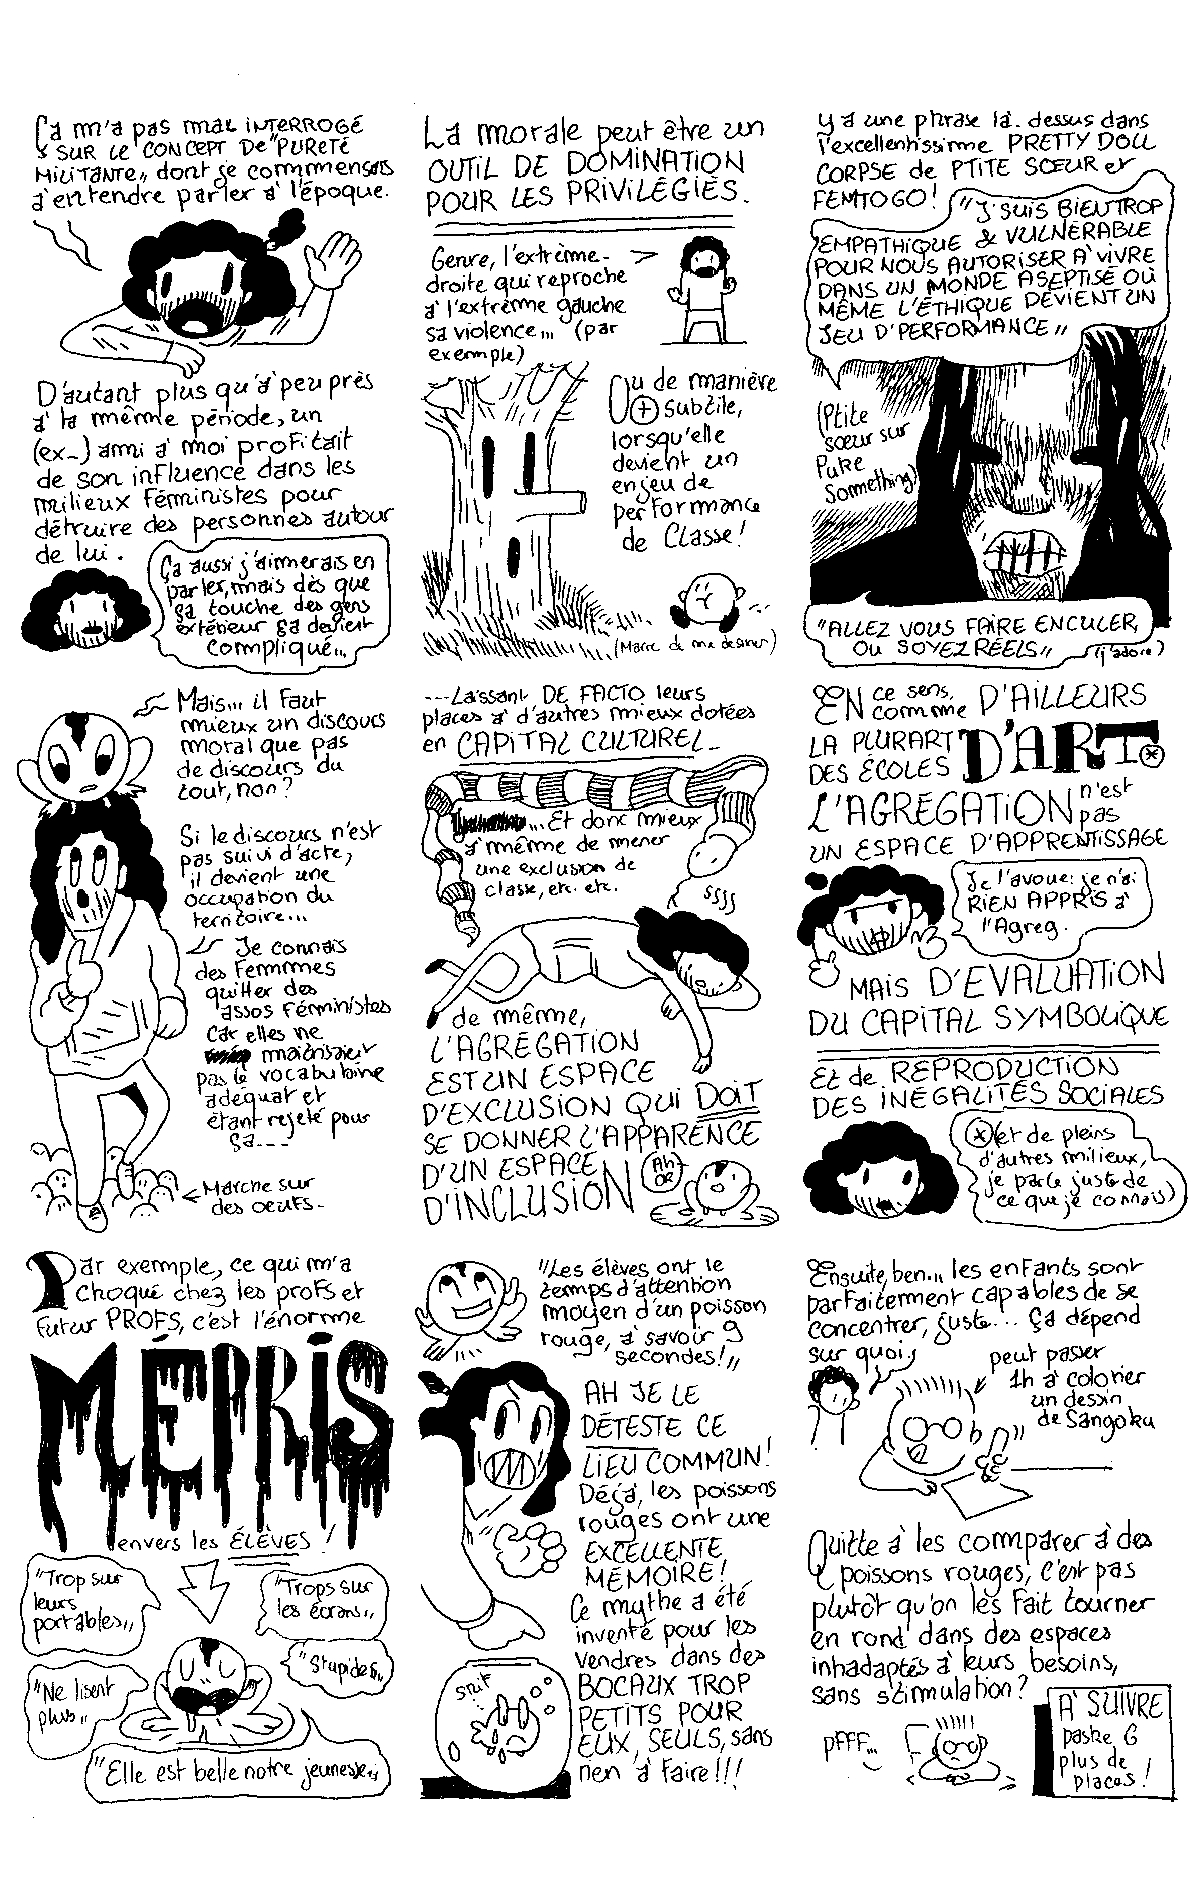 Ça m'a pas mal INTERROGÉ
SUR LE CONCEPT DE "PURETÉ
MILITANTE" dont je commençais
à entendre parler à l'époque.
D'autant plus qu'à peu près
à la même période, un
(ex-) ami à moi profitait
de son influence dans les
milieux féministes pour
détruire des personnes autour
de lui.
Ça aussi j'aimerais en
parler, mais dès que
ça touche des gens
extérieur ça devient
compliqué...
La morale peut être un
OUTIL DE DOMINATION
POUR LES PRIVILÉGIÉS.
Genre, l'extrême-
droite qui reproche
à l'extrême gauche
sa violence... (par
exemple)
Ou de manière
+ subtile,
lorsqu'elle
devient un
enjeu de
performance
de Classe!
(Marre de me dessiner)
Y a une phrase là-dessus dans
l'excellentissime PRETTY DOLL
CORPSE de PTITE SŒUR et
FEMTOGO!
"J'SUIS BIEN TROP
EMPATHIQUE & VULNÉRABLE
POUR NOUS AUTORISER À VIVRE
DANS UN MONDE ASEPTISÉ OÙ
MÊME L'ÉTHIQUE DEVIENT UN
JEU D'PERFORMANCE"
(Ptite
sœur sur
Puke
Something)
"ALLEZ VOUS FAIRE ENCULER,
OU SOYEZ RÉELS"
(j'adore)
Mais... il faut
mieux un discours
moral que pas
de discours du
tout, non?
Si le discours n'est
pas suivi d'acte,
il devient une
occupation du
territoire...
Je connais
des femmes
quitter des
assos féministes
car elles ne
maîtrisaient
pas le vocabulaire
adéquat et
étant rejeté pour
ça----
Marche sur
des oeufs-
---Laissant DE FACTO leurs
places à d'autres mieux dotées
en CAPITAL CULTUREL-
...Et donc mieux
à même de mener
une exclusion de
classe, etc. etc.
SSSS
de même,
L'AGRÉGATION
EST UN ESPACE
D'EXCLUSION QUI DOIT
SE DONNER L'APPARENCE
D'UN ESPACE
D'INCLUSION
Ah
OK
EN ce sens, D'AILLEURS
comme
LA PLUPART D'ART*
DES ÉCOLES
L'AGRÉGATION n'est
pas
UN ESPACE D'APPRENTISSAGE
Je l'avoue: je n'ai
RIEN APPRIS à
l'Agreg.
MAIS D'ÉVALUATION
DU CAPITAL SYMBOLIQUE
Et de REPRODUCTION
DES INÉGALITÉS SOCIALES
*(et de pleins
d'autres milieux,
je parle juste de
ce que je connais)
Par exemple, ce qui m'a
choqué chez les profs et
futur PROFS, c'est l'énorme
MÉPRIS
envers les ÉLÈVES!
"Trop sur
leurs
portables"
"Trops sur
les écrans"
"Stupides"
"Ne lisent
plus"
"Elle est belle notre jeunesse"
"Les élèves ont le
temps d'attention
moyen d'un poisson
rouge, à savoir 9
secondes!"
AH JE LE
DÉTESTE CE
LIEU COMMUN!
Déjà, les poissons
rouges ont une
EXCELLENTE
MÉMOIRE!
Ce mythe a été
inventé pour les
vendres dans des
BOCAUX TROP
PETITS POUR
EUX, SEULS, sans
rien à faire!!!
snif
Ensuite, ben... les enfants sont
parfaitement capables de se
concentrer, juste... Ça dépend
sur quoi,
peut passer
1h à colorier
un dessin
de Sangoku
Quitte à les comparer à des
poissons rouges, c'est pas
plutôt qu'on les fait tourner
en rond dans des espaces
inhadaptés à leurs besoins,
sans stimulation?
PFFF...
À SUIVRE
paske G
plus de
places!